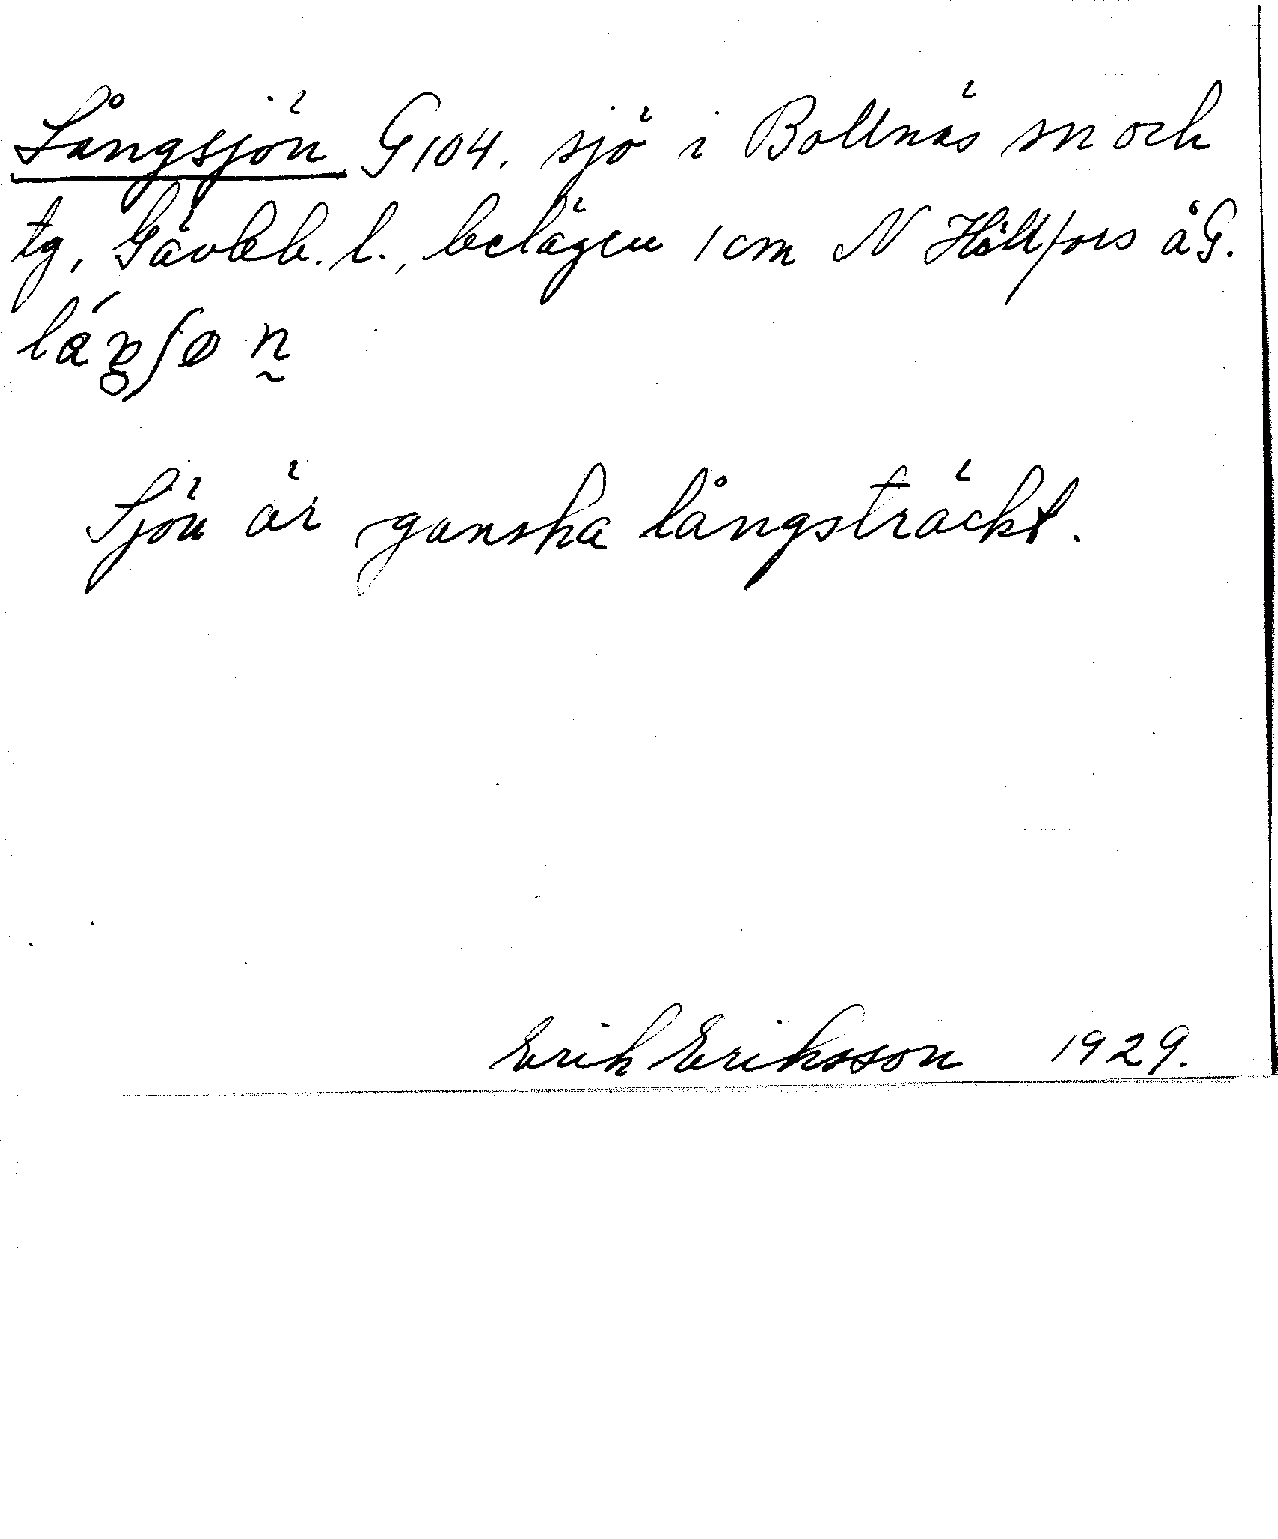 Långsjön G 104. sjö i Bollnäs sn och
tg, Gävleb. l., belägen 1 cm N Hällfors å G.
Sjön är ganska långsträckt.
Erik Eriksson 1929.